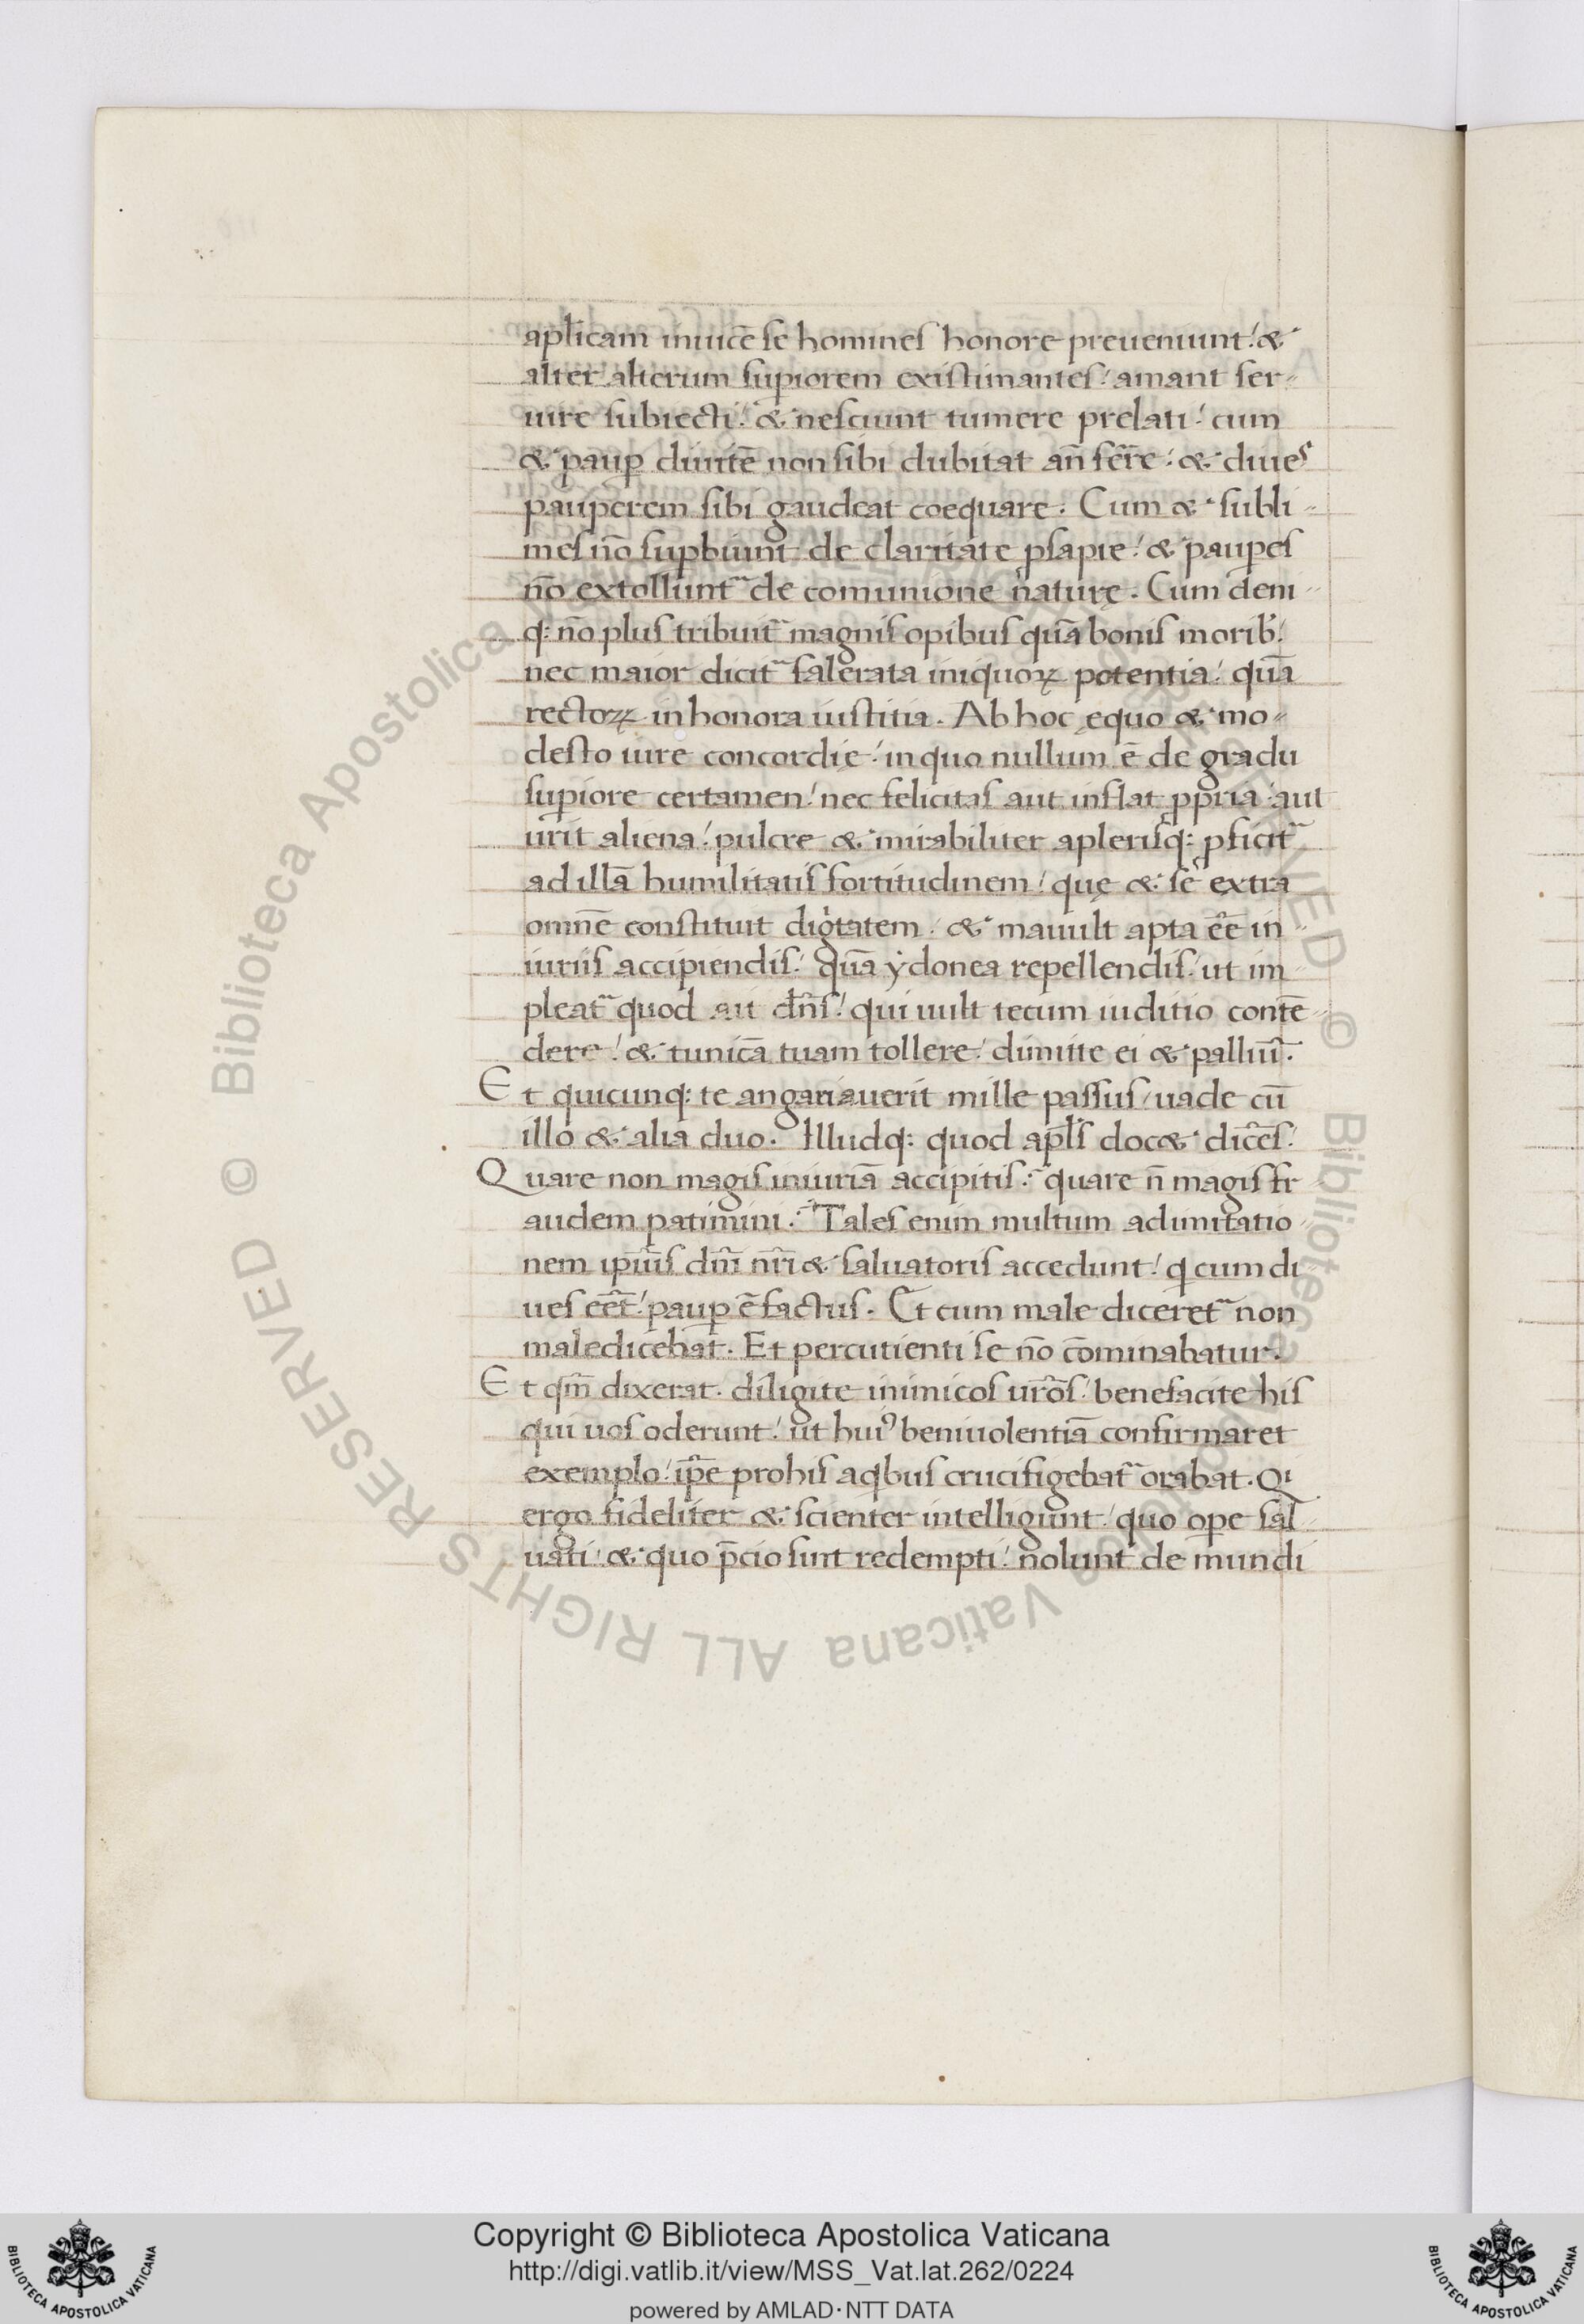 apl̄icam inuicē se homines honore preueniunt! &
alter alterum sup̱iorem existimantes! amant ser-
uire subiecti! & nesciunt tumere prelati! cum
& paup̱ diuitē non sibi dubitat an̄ fer̄re! & diues
pauperem sibi gaudeat coequare. Cum & subli-
mes nō sup̱biunt de claritate p̱sapie! & paup̱es
nō extollunt᷑ de comunione naturę. Cum deni-
q: nō plus tribuit᷑ magnis opibus quā bonis morib!
nec maior dicit᷑ falerata iniquoꝝ potentia! quā
rectoꝝ inhonora iustitia. Ab hoc ęquo & mo-
desto iure concordię! in quo nullum ē de gradu
sup̱iore certamen! nec felicitas aut inflat ꝓpria aut
urit aliena! pulcre & mirabiliter a plerisq: ꝓficit᷑
ad illā humilitatis fortitudinem! quę & se extra
omnē constituit digtatem. & mauult apta eē in-
iuriis accipiendis! quā ẏdonea repellendis! ut im-
pleat᷑ quod ait dn̄s! qui uult tecum iuditio contē-
dere! & tunicā tuam tollere! dimitte ei & palliū.
Et quicunq: te angariauerit mille passus / uade cū
illo & alia duo. Illudq: quod apl̄s doc& dicēs!
Quare non magis iniuriā accipitis? quare n̄ magis fr
audem patimini? Tales enim multum ad imitatio-
nem ip̄ius dn̄i nr̄i & saluatoris accedunt! q cum di
ues eēt! paup̱ ē factus. Et cum male diceret᷑ non
maledicebat. Et percutienti se nō cōminabatur.
Et qm̄ dixerat. diligite inimicos ur̄os! benefacite his
qui uos oderunt! ut huiꝰ beniuolentiā confirmaret
exemplo! ip̄e pro his a qbus crucifigebat᷑ orabat. Qi
ergo fideliter & scienter intelligunt / quo ope sal
uati! & quo p̄cio sint redempti! nolunt de mundi
Copyright © Biblioteca Apostolica Vaticana
http://digi.vatlib.it/view/MSS_Vat.lat.262/0224
powered by AMLAD·NTT DATA
BIBLIOTECA APOSTOLICA VATICANA
BIBLIOTECA APOSTOLICA VATICANA
© Biblioteca Apostolica Vaticana ALL RIGHTS RESERVED
© Biblioteca Apostolica Vaticana ALL RIGHTS RESERVED